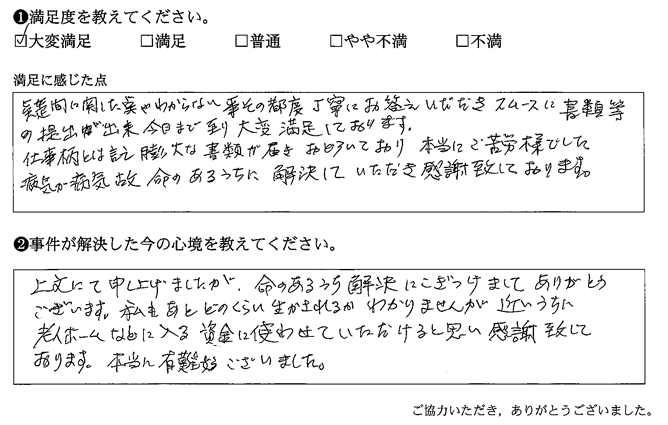 ❶満足度を教えてください。
☑大変満足 □満足 □普通 □やや不満 □不満
満足に感じた点
疑問に関した案やわからない事その都度丁寧にお答えいただきスムースに書類等
の提出が出来今日まで到り大変満足しております。
仕事柄とは言え膨大な書類が届きおどろいており本当にご苦労様でした
病気が病気故命のあるうちに解決していただき感謝致しております。
❷事件が解決した今の心境を教えてください。
上文にて申し上げましたが、命のあるうち解決にこぎつけましてありがとう
ございます。私もあとどのくらい生かされるかわかりませんが近いうちに
老人ホームなどに入る資金に使わせていただけると思い感謝致して
おります。本当に有難うございました。
ご協力いただき，ありがとうございました。